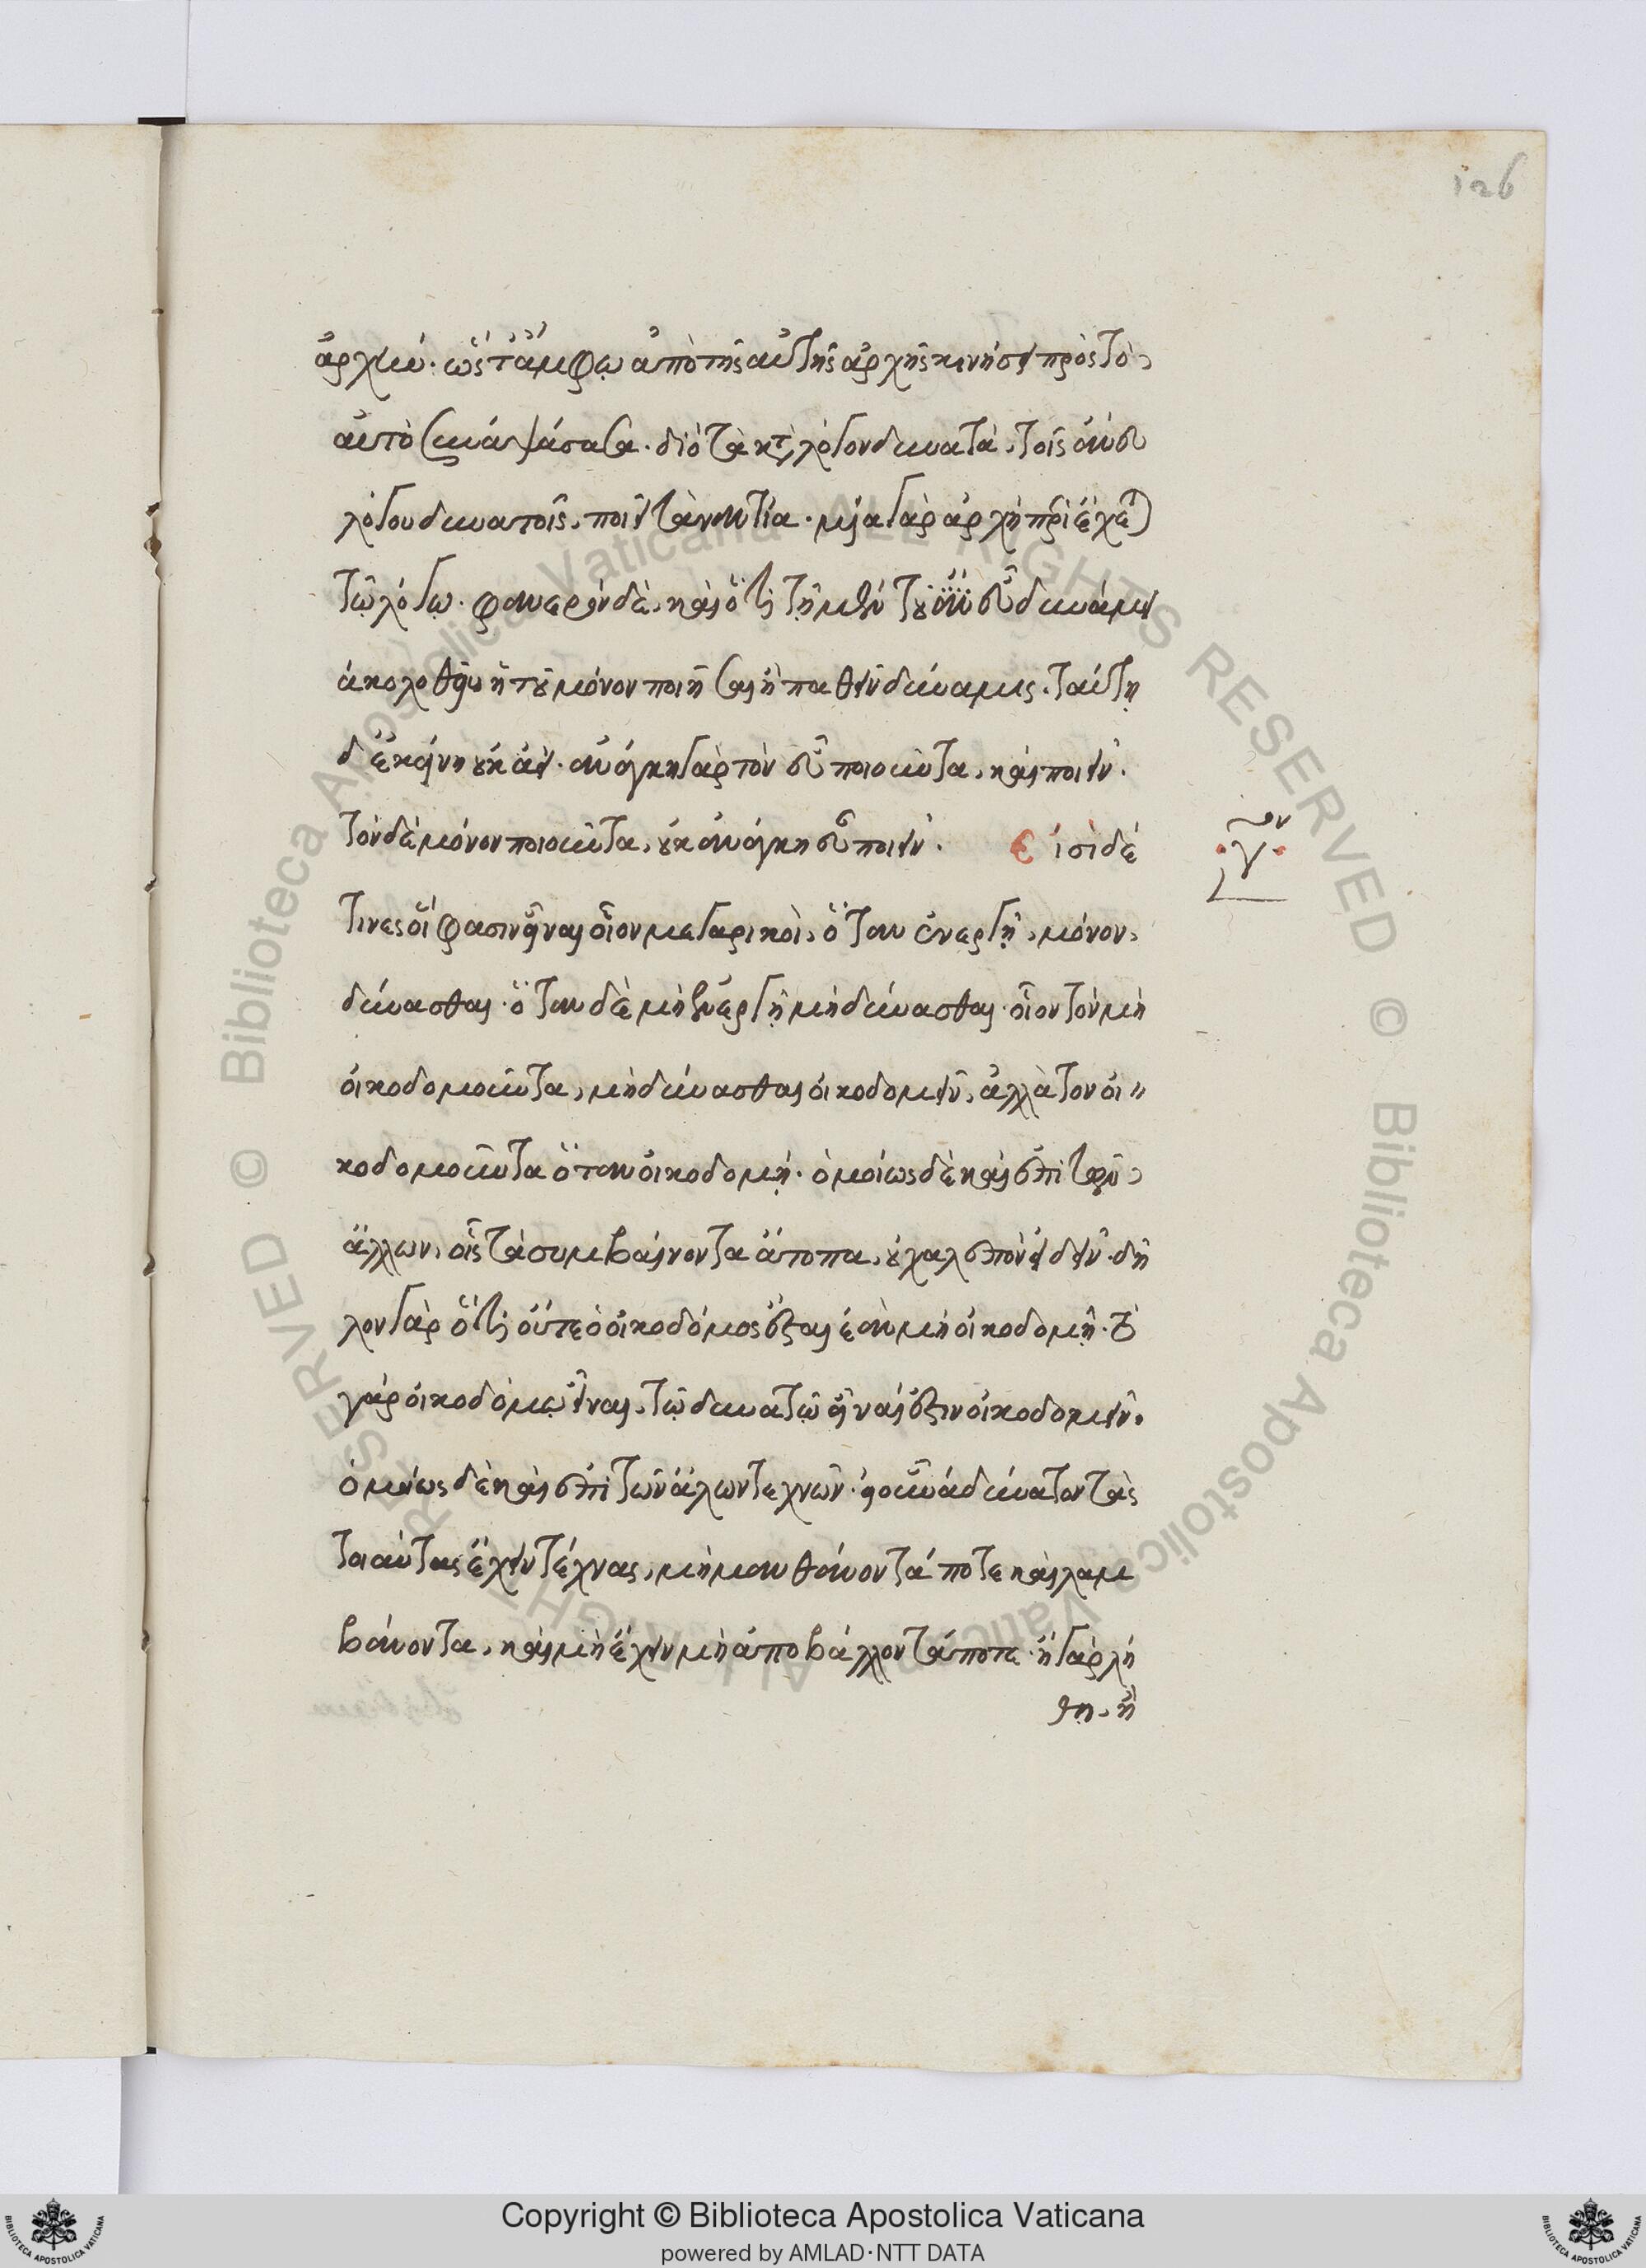 126
ἀρχήν· ὥστ' ἄμφω ἀπὸ τῆς αὐτῆς ἀρχῆς κινήσει πρὸς τὸ
αὐτὸ συνάψασα. διὸ τὰ κατὰ λόγον δυνατὰ, τοῖς ἄνευ
λόγου δυνατοῖς, ποιεῖ τἀναντία. μία γὰρ ἀρχὴ περιέχεται
τῷ λόγῳ. φανερὸν δὲ, καὶ ὅτι τῇ μὲν τοῦ εὖ δυνάμει
ἀκολουθεῖ ἡ τοῦ μόνον ποιῆσαι ἢ παθεῖν δύναμις. ταύτῃ
δ' ἐκείνη οὐκ ἀεί. ἀνάγκη γὰρ τὸν εὖ ποιοῦντα, καὶ ποιεῖν.
τὸν δὲ μόνον ποιοῦντα, οὐκ ἀνάγκη εὖ ποιεῖν. Εἰσὶ δέ
γον
τινες οἵ φασιν εἶναι οἷον μεγαρικοὶ, ὅταν ἐνεργῇ, μόνον
δύνασθαι. ὅταν δὲ μὴ ἐνεργῇ μὴ δύνασθαι. οἷον τὸν μὴ
οἰκοδομοῦντα, μὴ δύνασθαι οἰκοδομεῖν, ἀλλὰ τὸν οἰ
κοδομοῦντα ὅταν οἰκοδομῇ. ὁμοίως δὲ καὶ ἐπὶ τῶν
ἄλλων, οἷς τὰ συμβαίνοντα ἄτοπα, οὐ χαλεπὸν ἰδεῖν. δῆ
λον γὰρ ὅτι οὔτε ὁ οἰκοδόμος ἔσται ἐὰν μὴ οἰκοδομῇ. τὸ
γὰρ οἰκοδόμῳ εἶναι, τῷ δυνατῷ εἶναί ἐστιν οἰκοδομεῖν.
ὁμοίως δὲ καὶ ἐπὶ τῶν ἄλων τεχνῶν. εἰ οὖν ἀδύνατον τὰς
τοιαύτας ἔχειν τέχνας, μὴ μανθάνοντά ποτε καὶ λαμ
βάνοντα, καὶ μὴ ἔχειν μὴ ἀποβάλλοντά ποτε. ἢ γὰρ λή
θη, ἢ
Copyright © Biblioteca Apostolica Vaticana
powered by AMLAD·NTT DATA